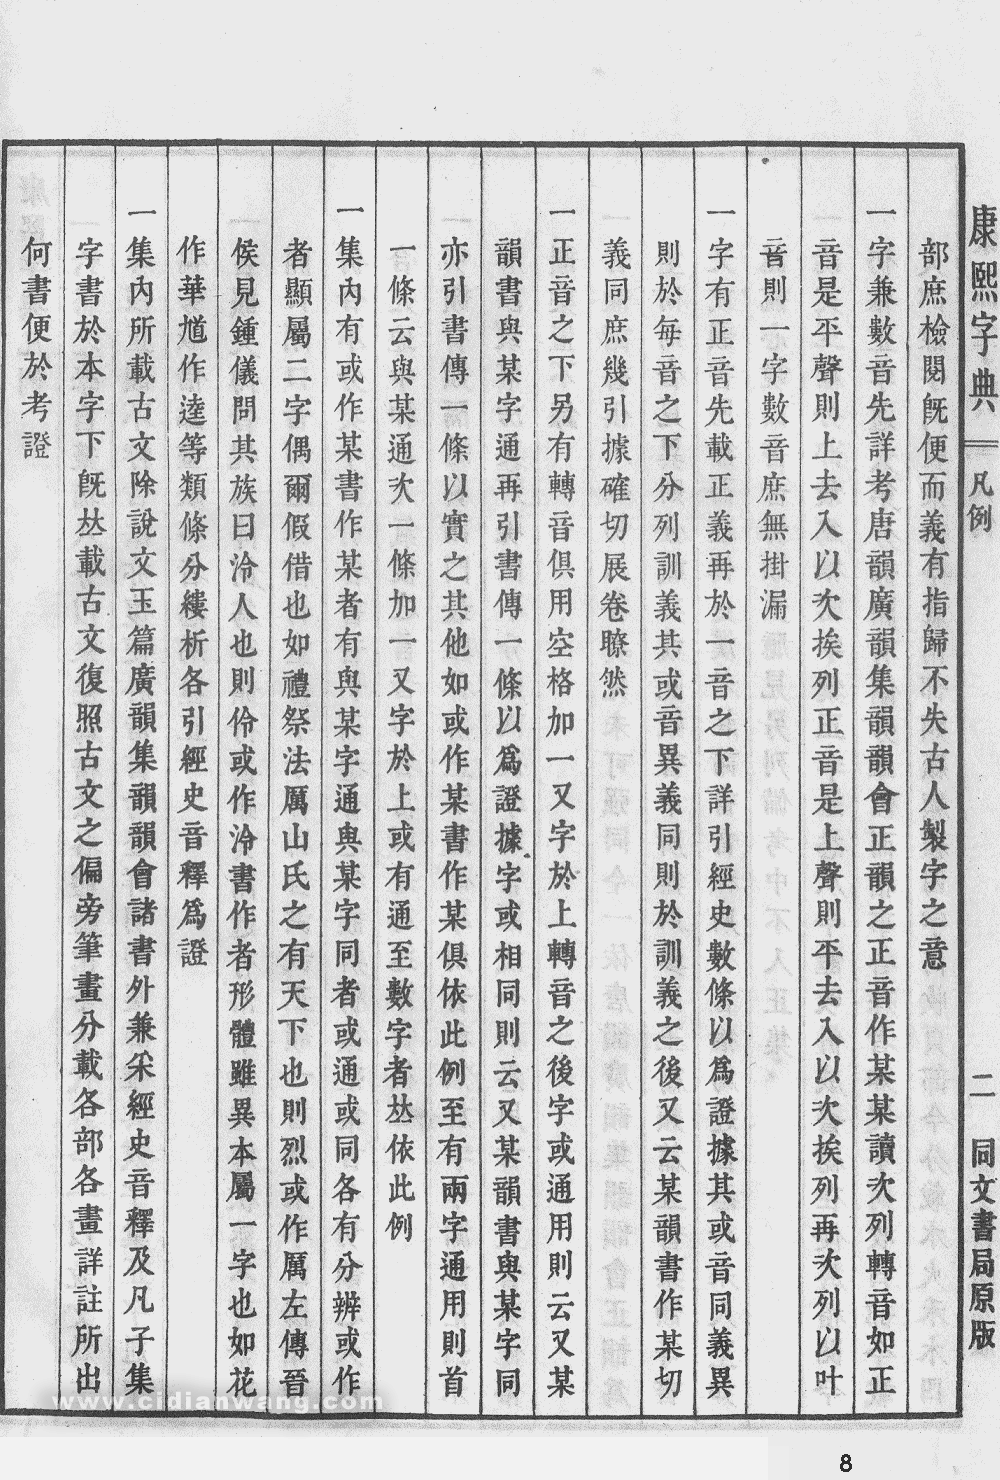 康熙字典 凡例 二 同文書局原版
部庶檢閱旣便而義有指歸不失古人製字之意
一字兼數音先詳考唐韻廣韻集韻韻會正韻之正音作某某讀次列轉音如正
音是平聲則上去入以次挨列正音是上聲則平去入以次挨列再次列以叶
音則一字數音庶無掛漏
一字有正音先載正義再於一音之下詳引經史數條以爲證據其或音同義異
則於每音之下分列訓義其或音異義同則於訓義之後又云某韻書作某切
義同庶幾引據確切展卷瞭然
一正音之下另有轉音俱用空格加一又字於上轉音之後字或通用則云又某
韻書與某字通再引書傳一條以爲證據字或相同則云又某韻書與某字同
亦引書傳一條以實之其他如或作某書作某俱依此例至有兩字通用則首
一條云與某通次一條加一又字於上或有通至數字者𠀤依此例
一集內有或作某書作某者有與某字通與某字同者或通或同各有分辨或作
者顯屬二字偶爾假借也如禮祭法厲山氏之有天下也則烈或作厲左傳晉
侯見鍾儀問其族曰泠人也則伶或作泠書作者形體雖異本屬一字也如花
作華馗作逵等類條分縷析各引經史音釋爲證
一集內所載古文除說文玉篇廣韻集韻韻會諸書外兼采經史音釋及凡子集
字書於本字下旣𠀤載古文復照古文之偏旁筆畫分載各部各畫詳註所出
何書便於考證
www.cidianwang.com
8